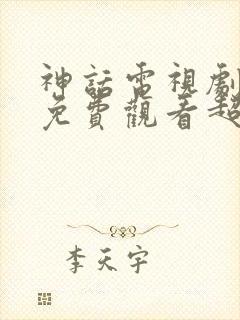 神話電視劇
免費觀看超
李天宇